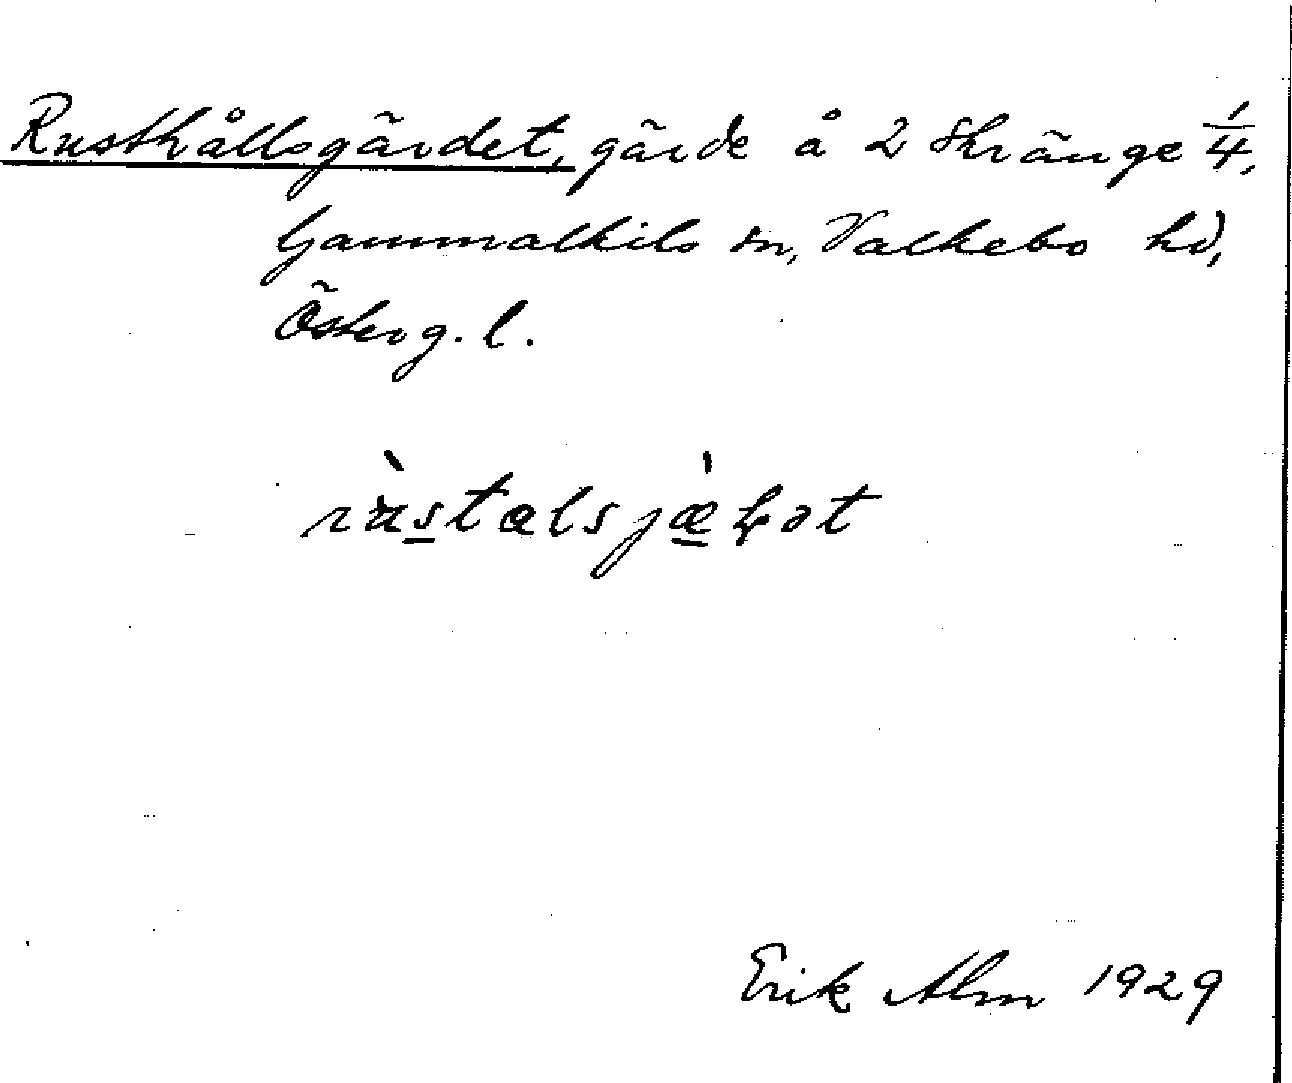 Rusthållsgärdet, gärde å 2 Skränge 1/4,
Gammalkils sn, Valkebo hd,
Österg. l.
rùstalsjæ̀ɽət
Erik Alm 1929